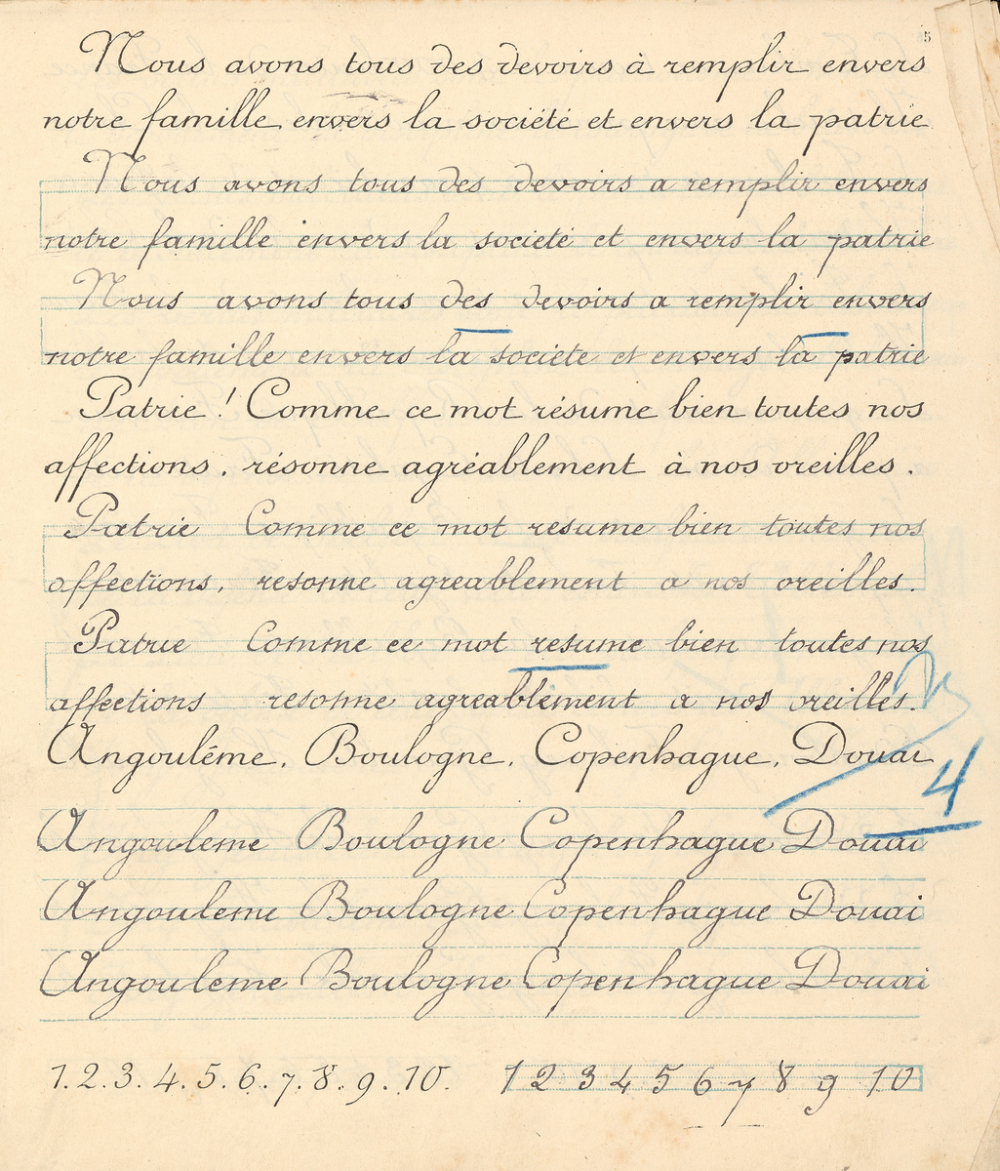 5
Nous avons tous des devoirs à remplir envers
notre famille, envers la société et envers la patrie
Nous avons tous des devoirs a remplir envers
notre famille envers la societé et envers la patrie
Nous avons tous des devoirs a remplir envers
notre famille envers la societe et envers la patrie
Patrie ! Comme ce mot résume bien toutes nos
affections, résonne agréablement à nos oreilles.
Patrie Comme ce mot resume bien toutes nos
affections, resonne agreablement a nos oreilles.
Patrie Comme ce mot resume bien toutes nos
affections resonne agreablement a nos oreilles.
Angoulême, Boulogne, Copenhague, Douai
4
Angouleme Boulogne Copenhague Douai
Angouleme Boulogne Copenhague Douai
Angouleme Boulogne Copenhague Douai
1.2.3.4.5.6.7.8.9.10. 1 2 3 4 5 6 7 8 9 10